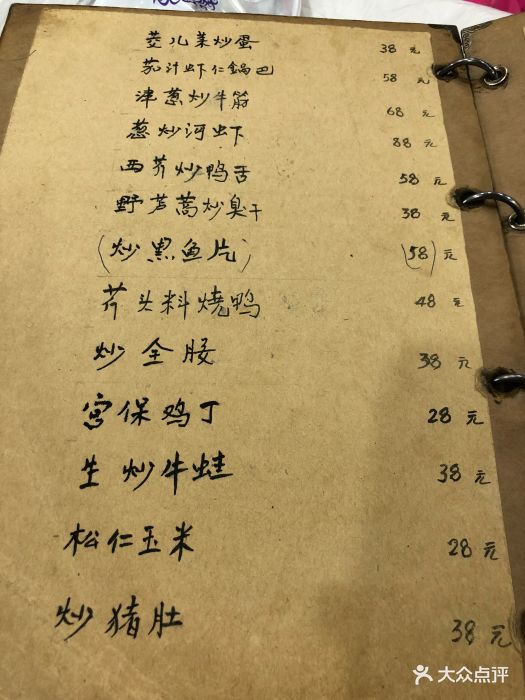 茭儿菜炒蛋 38元
茄汁虾仁锅巴 58元
津葱炒牛筋 68元
葱炒河虾 88元
西芥炒鸭舌 58元
野芦蒿炒臭干 38元
(炒黑鱼片) (58)元
芥头料烧鸭 48元
炒全腰 38元
宫保鸡丁 28元
生炒牛蛙 38元
松仁玉米 28元
炒猪肚 38元
大众点评